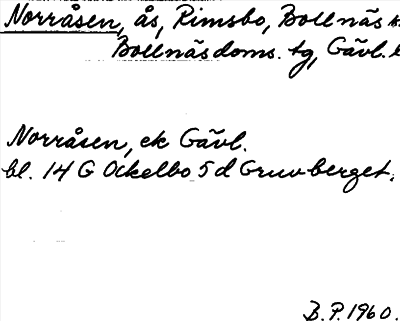 Norråsen, ås, Rimsbo, Bollnäs
Bollnäs doms. tg, Gävl.
Norråsen, ek Gävl.
bl. 14 G Ockelbo 5 d Gruvberget.
B. P. 1960.